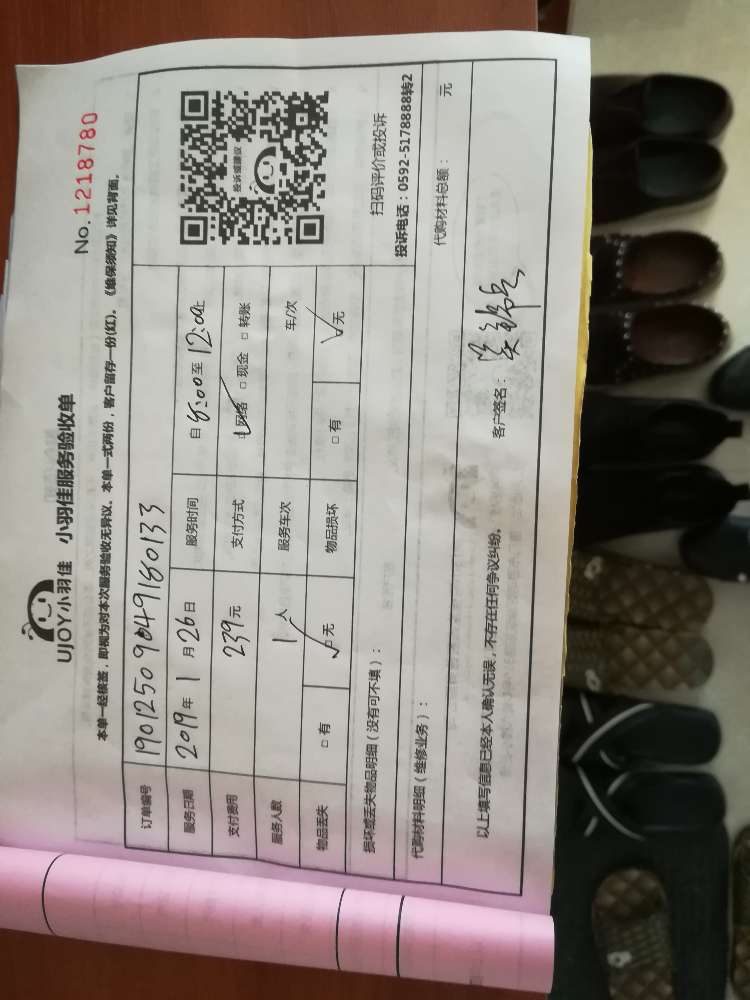 UJOY小羽佳 小羽佳服务验收单
No. 1218780
本单一经核签，即视为对本次服务验收无异议。本单一式两份，客户留存一份(红)。《维保须知》详见背面。
订单编号 190125090491860133
服务日期 2019年1月26日 服务时间 自8:00至12:00止
支付费用 239元 支付方式 网络 □ 现金 □ 转账
服务人数 1人 服务车次 车/次
物品丢失 □ 有 □ 无 物品损坏 □ 有 无
投诉或建议
扫码评价或投诉
投诉电话：0592-5178888转2
损坏或丢失物品明细（没有可不填）：
代购材料明细（维修业务）： 代购材料总额： 元
以上填写信息已经本人确认无误，不存在任何争议纠纷。 客户签名：